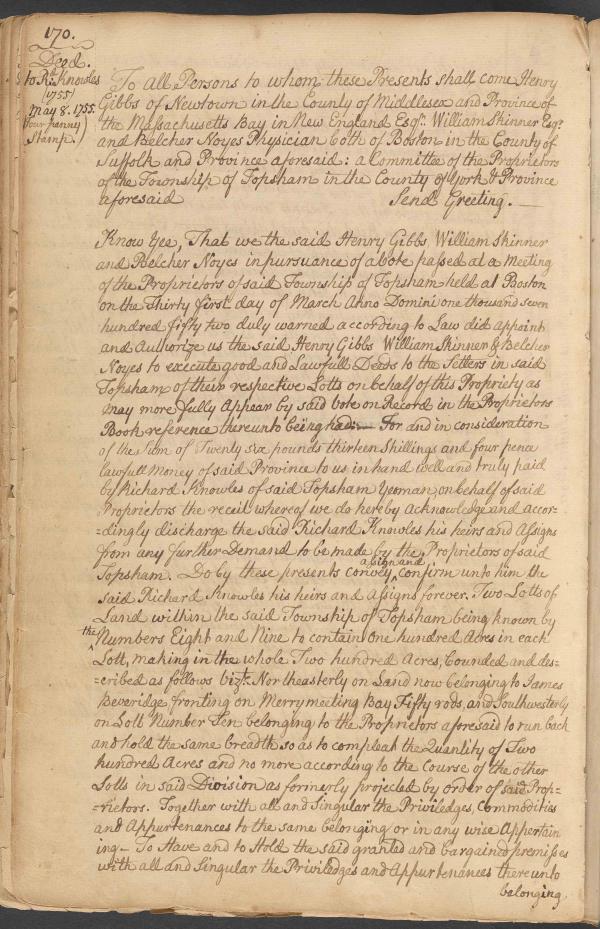 170.
Deed.
to Rd. Knowles
(1755)
May 8. 1755.
four penny
Stamp.
To all Persons to whom these Presents shall come Henry
Gibbs of Newtown in the County of Middlesex and Province of
the Massachusetts Bay in New England Esqr. William Skinner Esqr.
and Belcher Noyes Physician both of Boston in the County of
Suffolk and Province aforesaid: a Committee of the Proprietors
of the Township of Topsham in the County of York & Province
aforesaid Send Greeting.
Know Yee, That we the said Henry Gibbs, William Skinner
and Belcher Noyes in pursuance of a vote passed at a Meeting
of the Proprietors of said Township of Topsham held at Boston
on the Thirty first day of March Anno Domini one thousand seven
hundred fifty two duly warned according to Law did appoint
and Authorize us the said Henry Gibbs William Skinner & Belcher
Noyes to execute good and Lawfull Deeds to the Setlers in said
Topsham of their respective Lotts on behalf of this Propriety as
may more fully Appear by said vote on Record in the Proprietors
Book reference thereunto being had:— For and in consideration
of the Sum of Twenty six pounds thirteen Shillings and four pence
lawfull Money of said Province to us in hand well and truly paid
by Richard Knowles of said Topsham Yeoman, on behalf of said
Proprietors the receit whereof we do hereby acknowledge and accor-
=dingly discharge the said Richard Knowles his heirs and Assigns
from any further Demand to be made by the Proprietors of said
Topsham. Do by these presents convey, assign and confirm unto him the
said Richard Knowles his heirs and Assigns forever. Two Lotts of
Land within the said Township of Topsham being known by
the Numbers Eight and Nine to contain One hundred Acres in each
Lott, making in the whole Two hundred Acres, bounded and des-
=cribed as follows vizt. Northeasterly on Land now belonging to James
Beveridge fronting on Merrymeeting Bay Fifty rods, and Southwesterly
on Lott Number Ten belonging to the Proprietors aforesaid to run back
and hold the same breadth so as to compleat the Quantity of Two
hundred Acres and no more according to the Course of the other
Lotts in said Division as formerly projected by order of said Prop-
=rietors. Together with all and Singular the Priviledges, Commodities
and Appurtenances to the same belonging or in any wise Appertain
ing— To Have and to Hold the said granted and bargained premisses
with all and Singular the Priviledges and Appurtenances thereunto
belonging